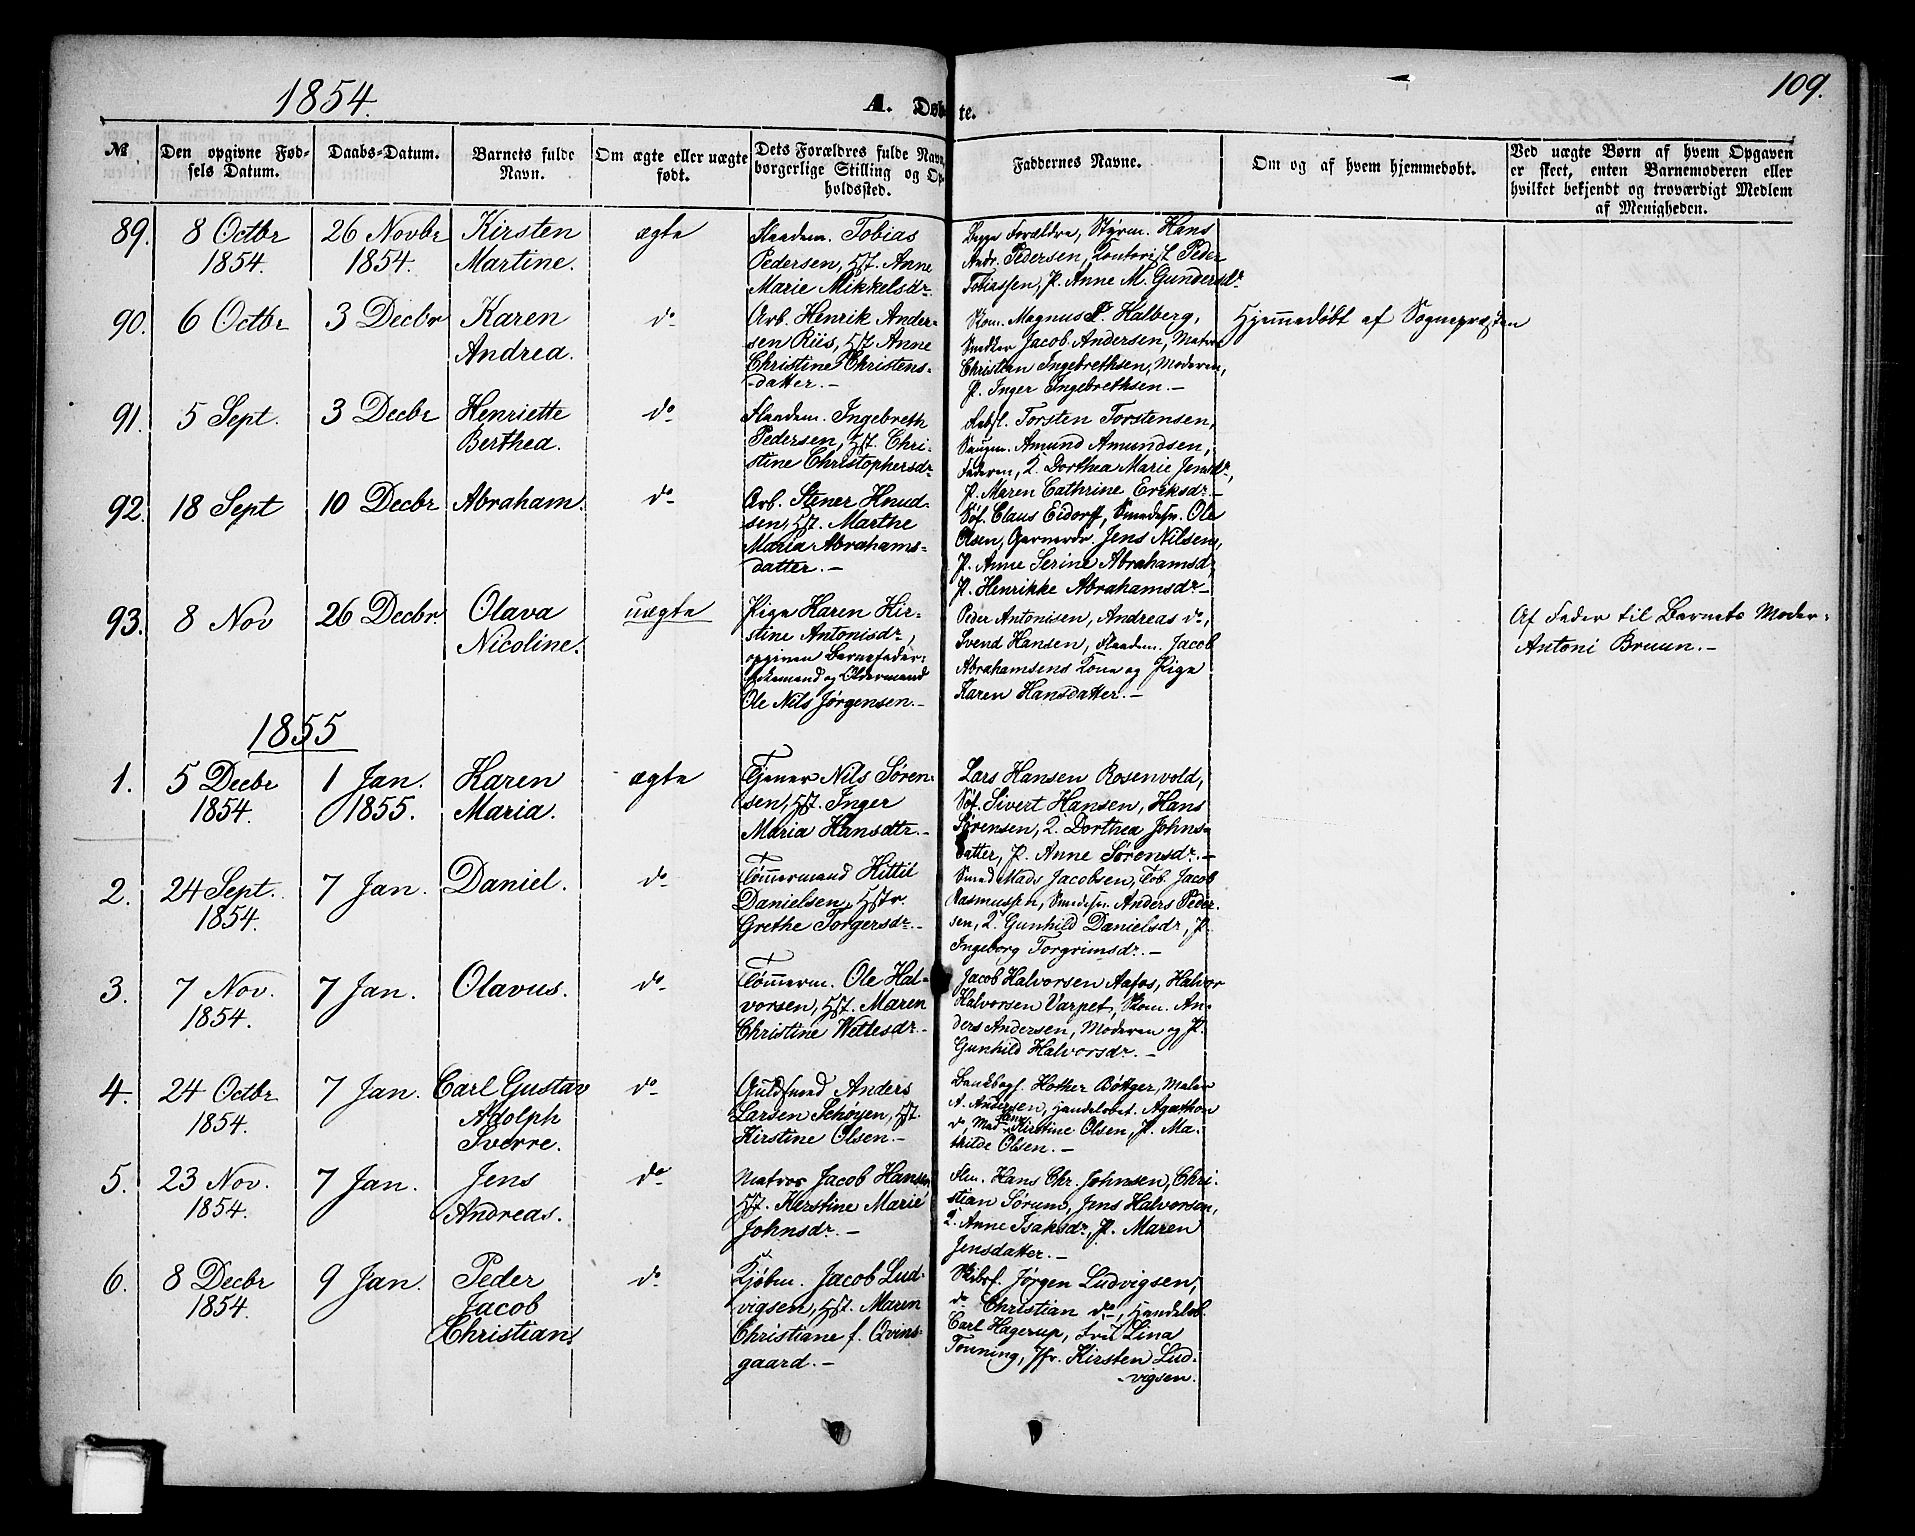 1854.
A. Døbte.
109.
№
Den opgivne Fød-
sels Datum.
Daabs-Datum.
Barnets fulde
Navn.
Om ægte eller uægte
født.
Dets Forældres fulde Navn,
borgerlige Stilling og Op-
holdssted.
Faddernes Navne.
Om og af hvem hjemmedøbt.
Ved uægte Børn af hvem Opgaven
er skeet, enten Barnemoderen eller
hvilket bekjendt og troværdigt Medlem
af Menigheden.
89.
8 Octbr
1854.
26 Novbr
1854.
Kirsten
Martine.
ægte
Flaadem. Tobias
Pedersen, Hst. Anne
Marie Mikkelsdr.
Begge Forældre, Styrm. Hans
Andr. Pedersen, Kontorist Peder
Tobiassen, P. Anne M. Gundersdr.
90.
6 Octbr
3 Decbr
Karen
Andrea.
do
Arb. Henrik Ander-
sen Riis, Hst. Anne
Christine Christens-
datter. -
Skom. Magnus P. Halberg,
Snedker Jacob Andersen, Matros
Christian Ingebrethsen, Moderen,
P. Inger Ingebrethsen. -
Hjemmedøbt af Sognepræsten
91.
5 Sept.
3 Decbr
Henriette
Berthea.
do
Flaadem. Ingebreth
Pedersen, Hst. Chri-
stine Christophersdr.
Torsten Torstensen,
Saugm. Amund Amundsen,
Faderen, K. Dorthea Marie Jensdr.,
P. Maren Cathrine Eriksdr. -
92.
18 Sept
10 Decbr
Abraham.
do
Arb. Stener Knud-
sen, Hst. Marthe
Maria Abrahams-
datter. -
Søf. Claus Eidorff, Smedesv. Ole
Olsen, Garverdr. Jens Nilsen,
P. Anne Serine Abrahamsd.
P. Henrikke Abrahamsdr. -
93.
8 Nov
26 Decbr.
Olava
Nicoline.
uægte
Pige Karen Kir-
stine Antonisdr.,
opgiven Barnefader:
Enkemand og Oldermand
Ole Nils Jørgensen. -
Peder Antonisen, Andreas do,
Svend Hansen, Flaadem. Jacob
Abrahamsens Kone og Pige
Karen Hansdatter. -
Af Fader til Barnets Moder
Antoni Bruun. -
1855
1.
5 Decbr
1854.
1 Jan.
1855.
Karen
Maria.
ægte
Tjener Nils Søren-
sen, Hst. Inger
Maria Hansdtr. -
Lars Hansen Rosenvold,
Søf. Sivert Hansen, Hans
Sørensen, K. Dorthea Johns-
datter, P. Anne Sørensdr. -
2.
24 Sept.
1854.
7 Jan.
Daniel.
do
Tømmermand Kittil
Danielsen, Hstr.
Grethe Torgersdr. -
Smed Mads Jacobsen, Tob. Jacob
Rasmussen, Smedesv. Anders Peder-
sen, K. Gunhild Danielsdr, P.
Ingeborg Torgrimsdr. -
3.
7 Nov.
1854.
7 Jan.
Olavus.
do
Tømmerm. Ole Hal-
vorsen, Hst. Maren
Christine Wettesdr. -
Jacob Halvorsen Aafos, Halvor
Halvorsen Varpet, Skom. An-
ders Andersen, Moderen og P.
Gunhild Halvorsdr. -
4.
24 Octbr
1854.
7 Jan.
Carl Gustav
Adolph
Sverre.
do
Guldsmed Anders
Larsen Schøyen, Hst.
Kirstine Olsen. -
Hother Bøttger, Maler
A. Andersen, Handelsbet. Agathon
do, Mad. Kirstine Olsen, P. Ma-
thilde Olsen. -
5.
23 Nov.
1854.
7 Jan.
Jens
Andreas.
do
Matros Jacob Hansen,
Hst. Karstine Marie
Johnsdr. -
Flm. Hans Chr. Johnsen, Chri-
stian Sørum, Jens Halvorsen,
K. Anne Isaksdr, P. Maren
Jensdatter. -
6.
8 Decbr
1854.
9 Jan.
Peder
Jacob
Christian.
do
Kjøbm. Jacob Lud-
vigsen, Hst. Maren
Christiane f. Qvins-
gaard. -
Skibsf. Jørgen Ludvigsen,
do Christian do, Handelsb.
Carl Hagerup, Frk Lina
Touning, Jfr. Kirsten Lud-
vigsen.